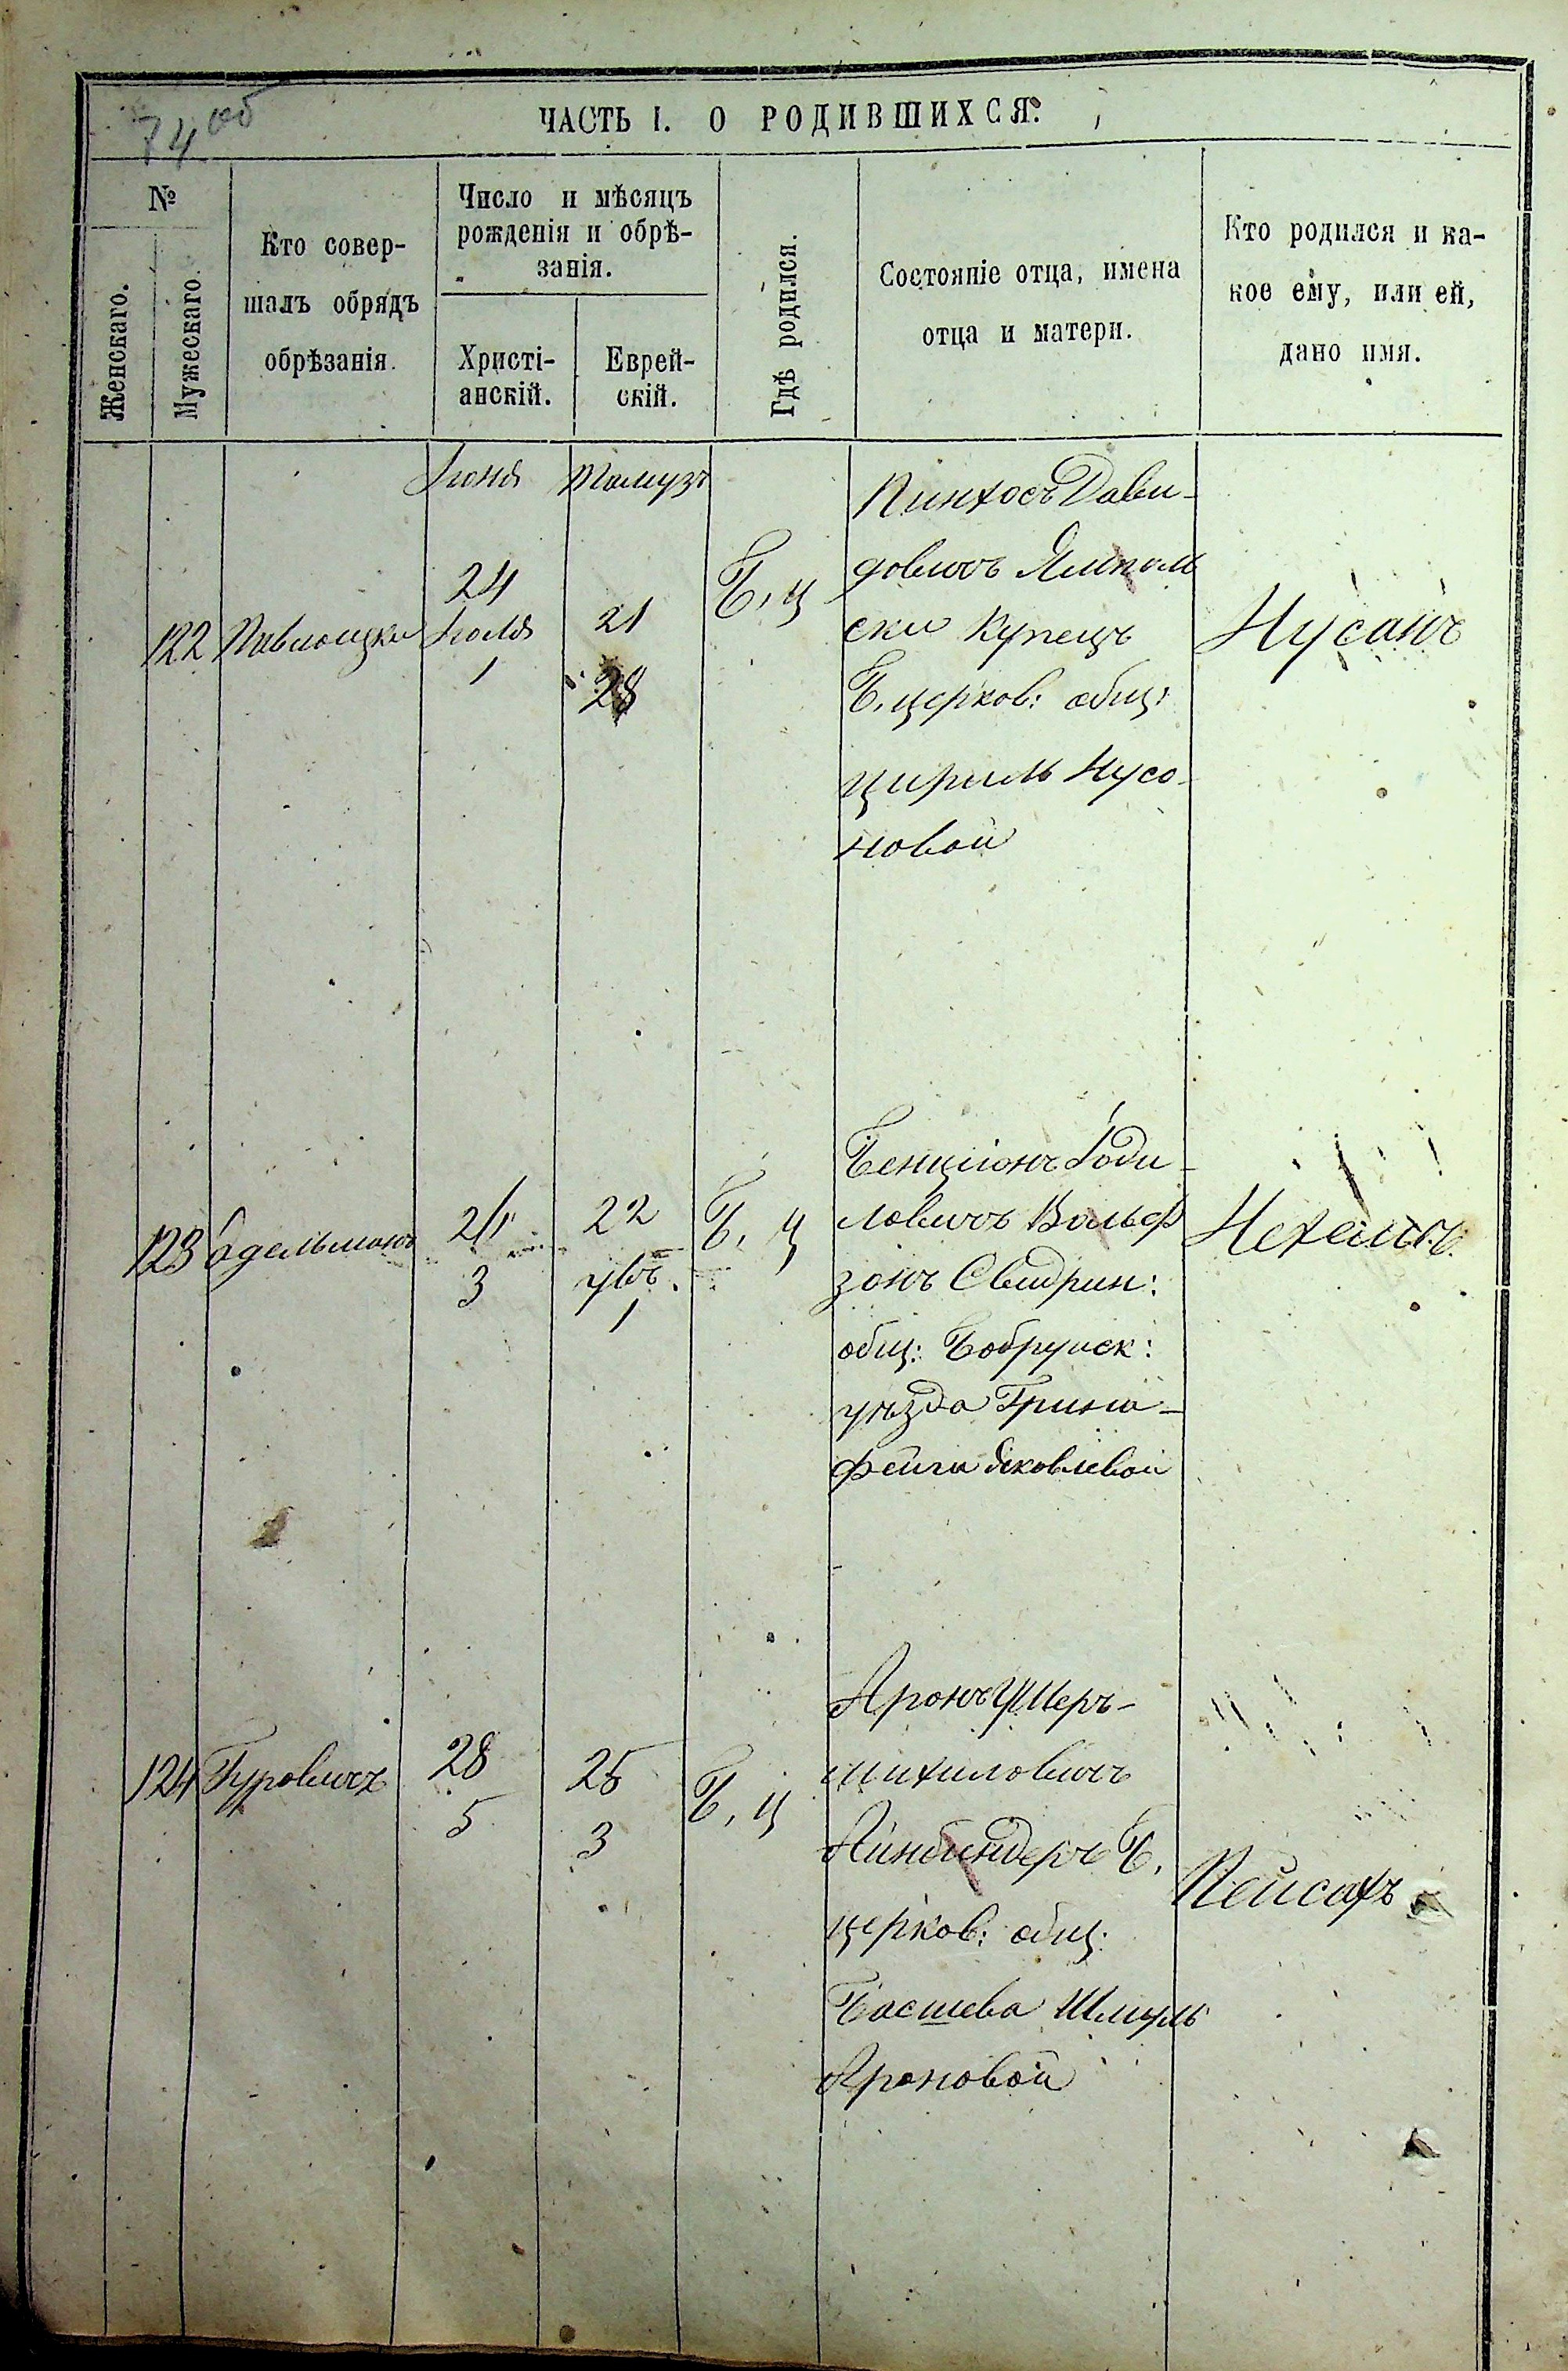 74 об
ЧАСТЬ I. О РОДИВШИХСЯ.
№
Женскаго.
Мужескаго.
Кто совер-
шалъ обрядъ
обрѣзанія.
Число и мѣсяцъ
рожденія и обрѣ-
занія.
Христі-
анскій.
Еврей-
скій.
Гдѣ родился.
Состояніе отца, имена
отца и матери.
Кто родился и ка-
кое ему, или ей,
дано имя.
Іюня Тамузъ
122 Павлоцки
24
Іюля
1
21
28
Б, ц
Пинхосъ Дави-
довичъ Ямполь
ски Купецъ
Б, церков: общ:
Цириль Нусо-
новой
Нусанъ
123 Эдельманъ
3
22
1
Б, ц
Бенціонъ Годи-
ловичъ Вольф
зонъ Свидрин:
общ: Бобруиск:
уѣзда
Фейги Яковлевой
124 Гуровичъ
28
5
25
3
Б, ц
Аронъ
михиловичъ
Айнбиндеръ Б,
церков: общ:
Басшева Шмуль
Ароновой
Пейсахъ